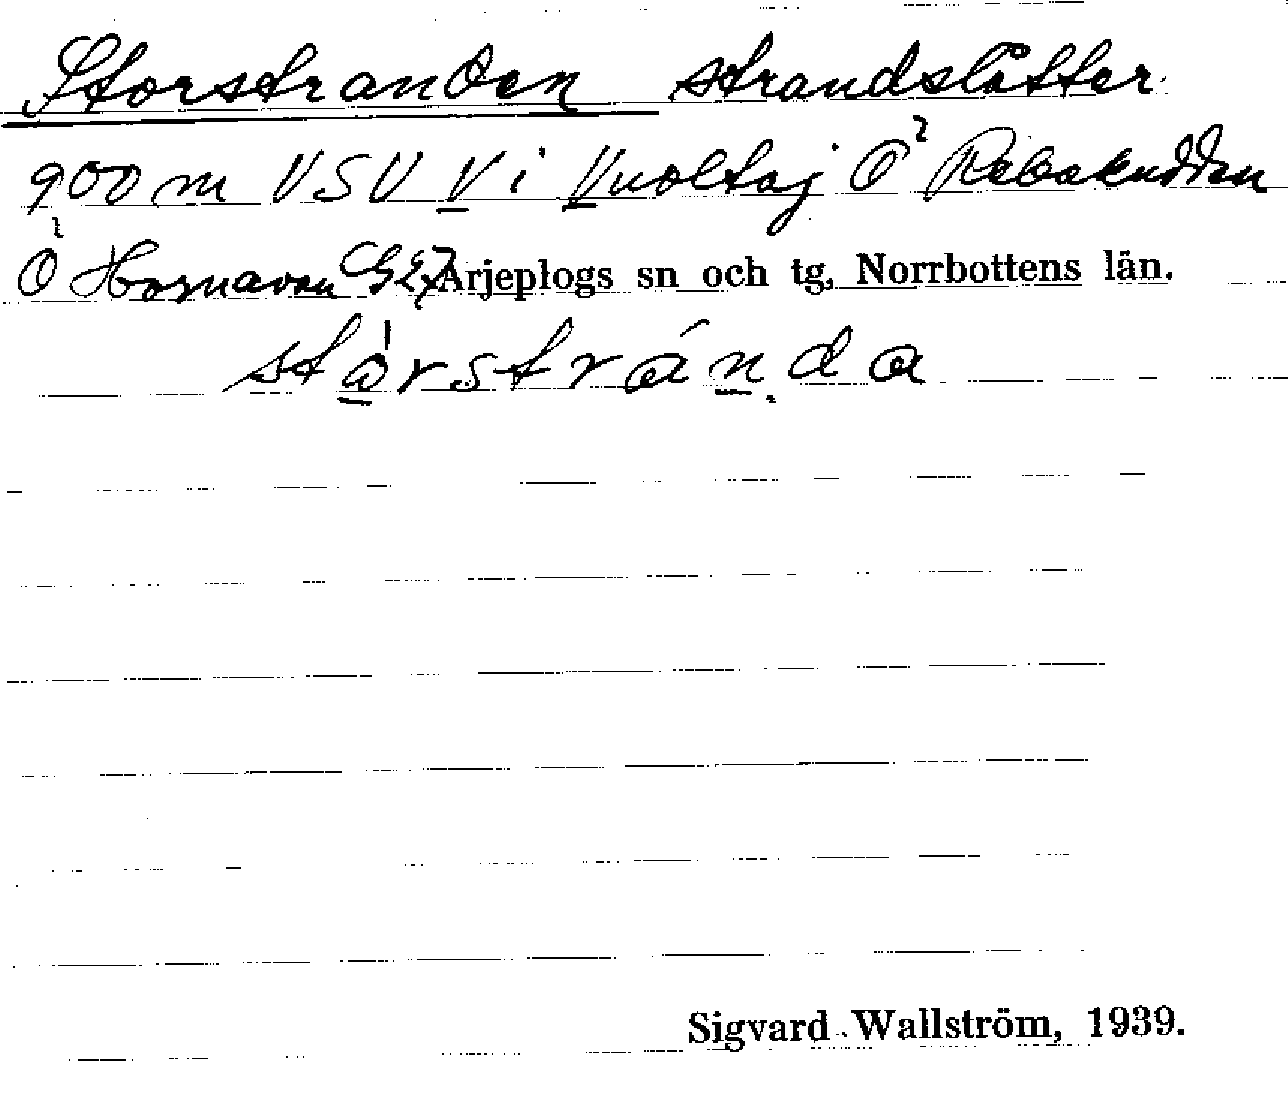 Storstranden strandslåtter
900 m VSV V i Vuoltaj Ö Rebakudden
Ö Hornavan G27 Arjeplogs sn och tg, Norrbottens län.
stòrstránda
Sigvard Wallström, 1939.